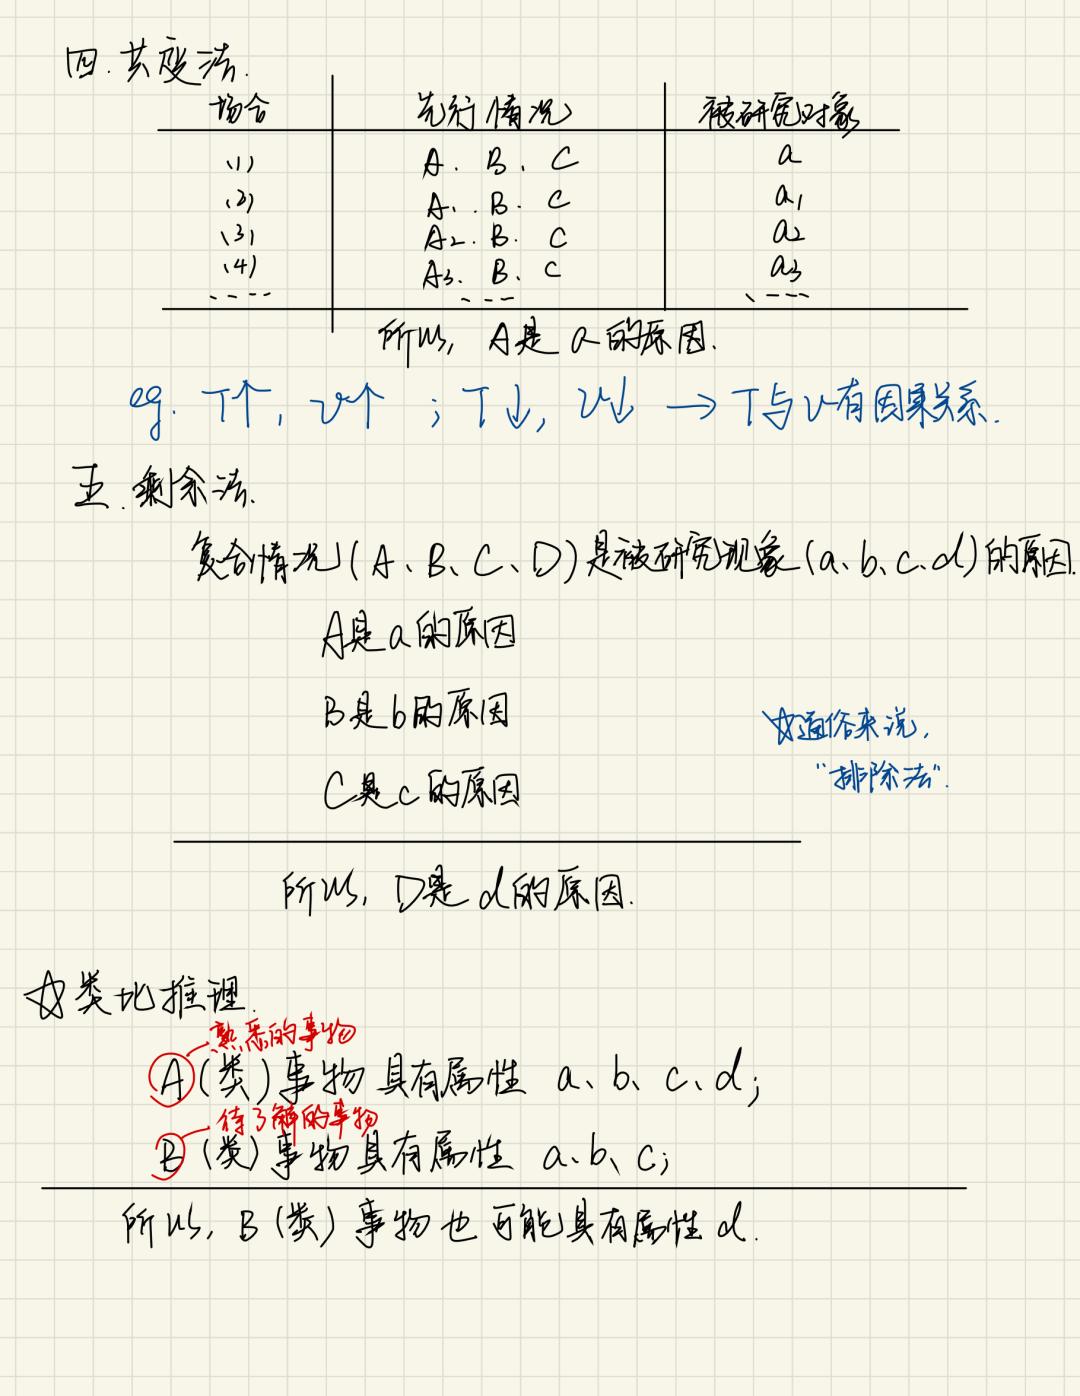 四.共变法.
场合 先行情况 被研究对象
(1) A. B. C a
(2) A₁. B. C a₁
(3) A₂. B. C a₂
(4) A₃. B. C a₃
---- --- ----
所以, A是a的原因.
eg. T↑, v↑ ; T↓, v↓ → T与v有因果关系.
五.剩余法.
复合情况(A、B、C、D)是被研究现象(a、b、c、d)的原因.
A是a的原因
B是b的原因
☆通俗来说,
“排除法”.
C是c的原因
所以, D是d的原因.
☆类比推理.
熟悉的事物
A(类)事物具有属性 a、b、c、d;
待了解的事物
B(类)事物具有属性 a、b、c;
所以, B(类)事物也可能具有属性d.